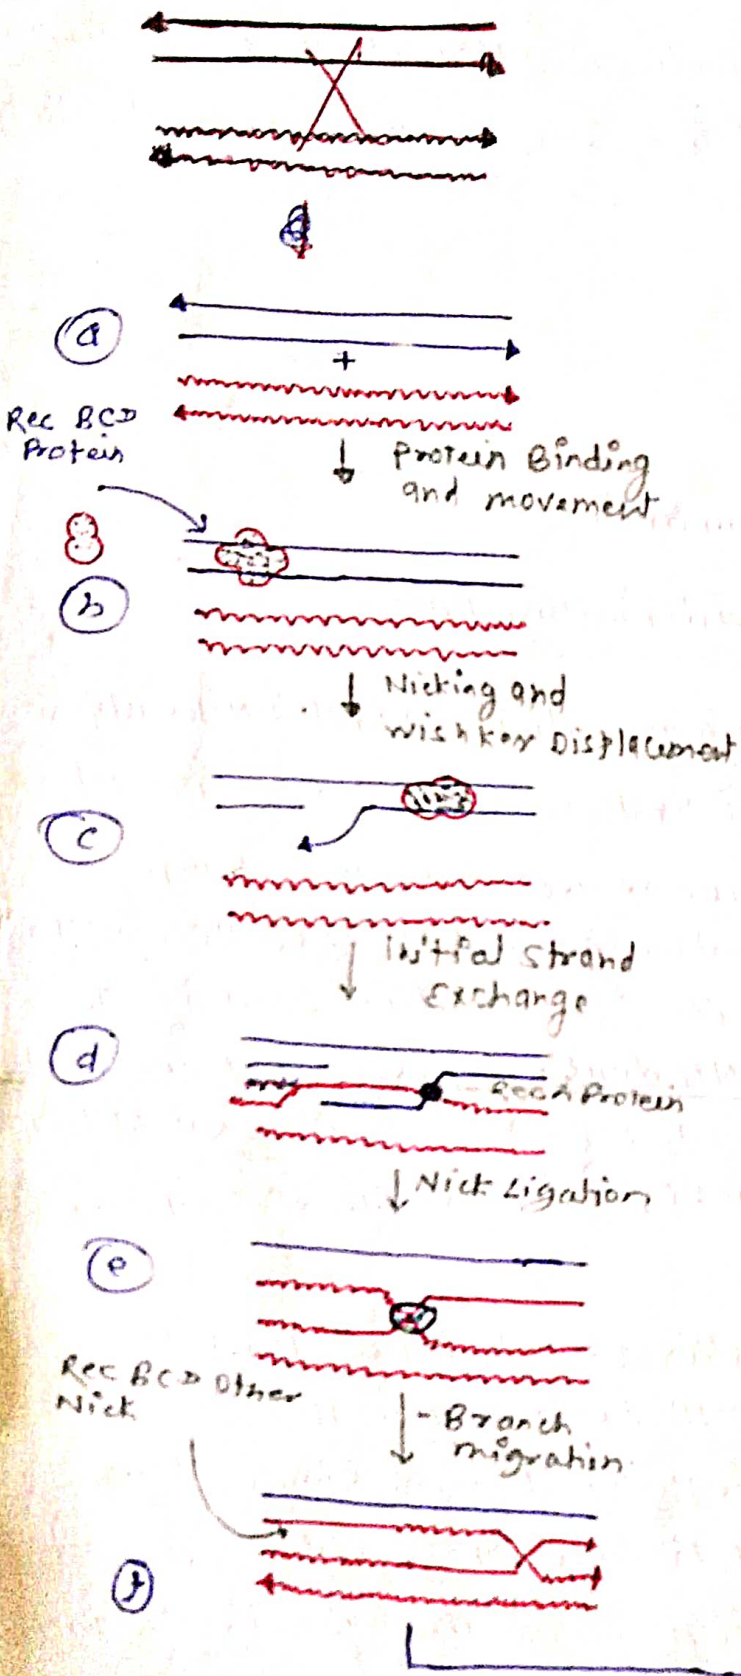 a
+
Rec BCD
Protein
Protein Binding
and movement
b
Nicking and
wishker Displacement
c
initial strand
Exchange
d
- Rec A Protein
Nick Ligation
e
Rec BCD Other
Nick
- Branch
migration
f